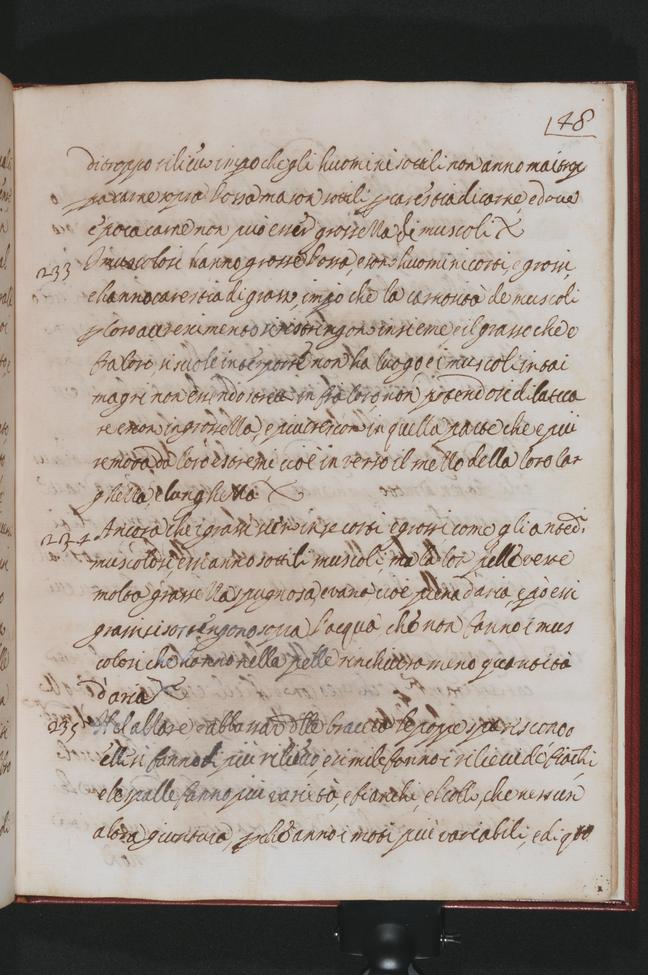 148
di troppo rilieuo inpo che gli huomini sottili non anno mai trop
pa carne sopra l'ossa ma son sottili p carestia di carne e doue
è poca carne non può esser grossezza di muscoli
233 I muscolosi hanno grosse l'ossa, e son huomini corti, e grossi
e hanno carestia di grasso, impo che la carnosità de muscoli
p loro accrescimento si ristringono insieme e il grasso che
fra loro si suole interporre non ha luogo e i muscoli in tai
magri non essendo fra loro non potendosi dilatta
re e non ingrossella, e più crescon in quella parte che e più
remota da loro estremi cioè inverso il mezzo della loro lar
ghezza, e lunghezza
234 Ancora che i grassi sien in se corti e grossi come gli anted.
muscolosi essi anno sottili muscoli, ma la lor pelle veste
molta grassezza spugnosa, e vana cioè piena d'aria, e pò essi
grassi si sostengono sopra l'acqua che non fanno i mus
colosi che hanno nella pelle rinchiusa meno quantità
d'aria
235 Nel alzare e abbassar delle braccia le poppe spariscono
è lle si fanno di più rilieuo, e simile fanno i rilieui de fianchi
e le spalle fanno più varietà, e fianchi, e'l collo, che nessun'
altra giuntura, pche anno i moti più variabili, e di qto